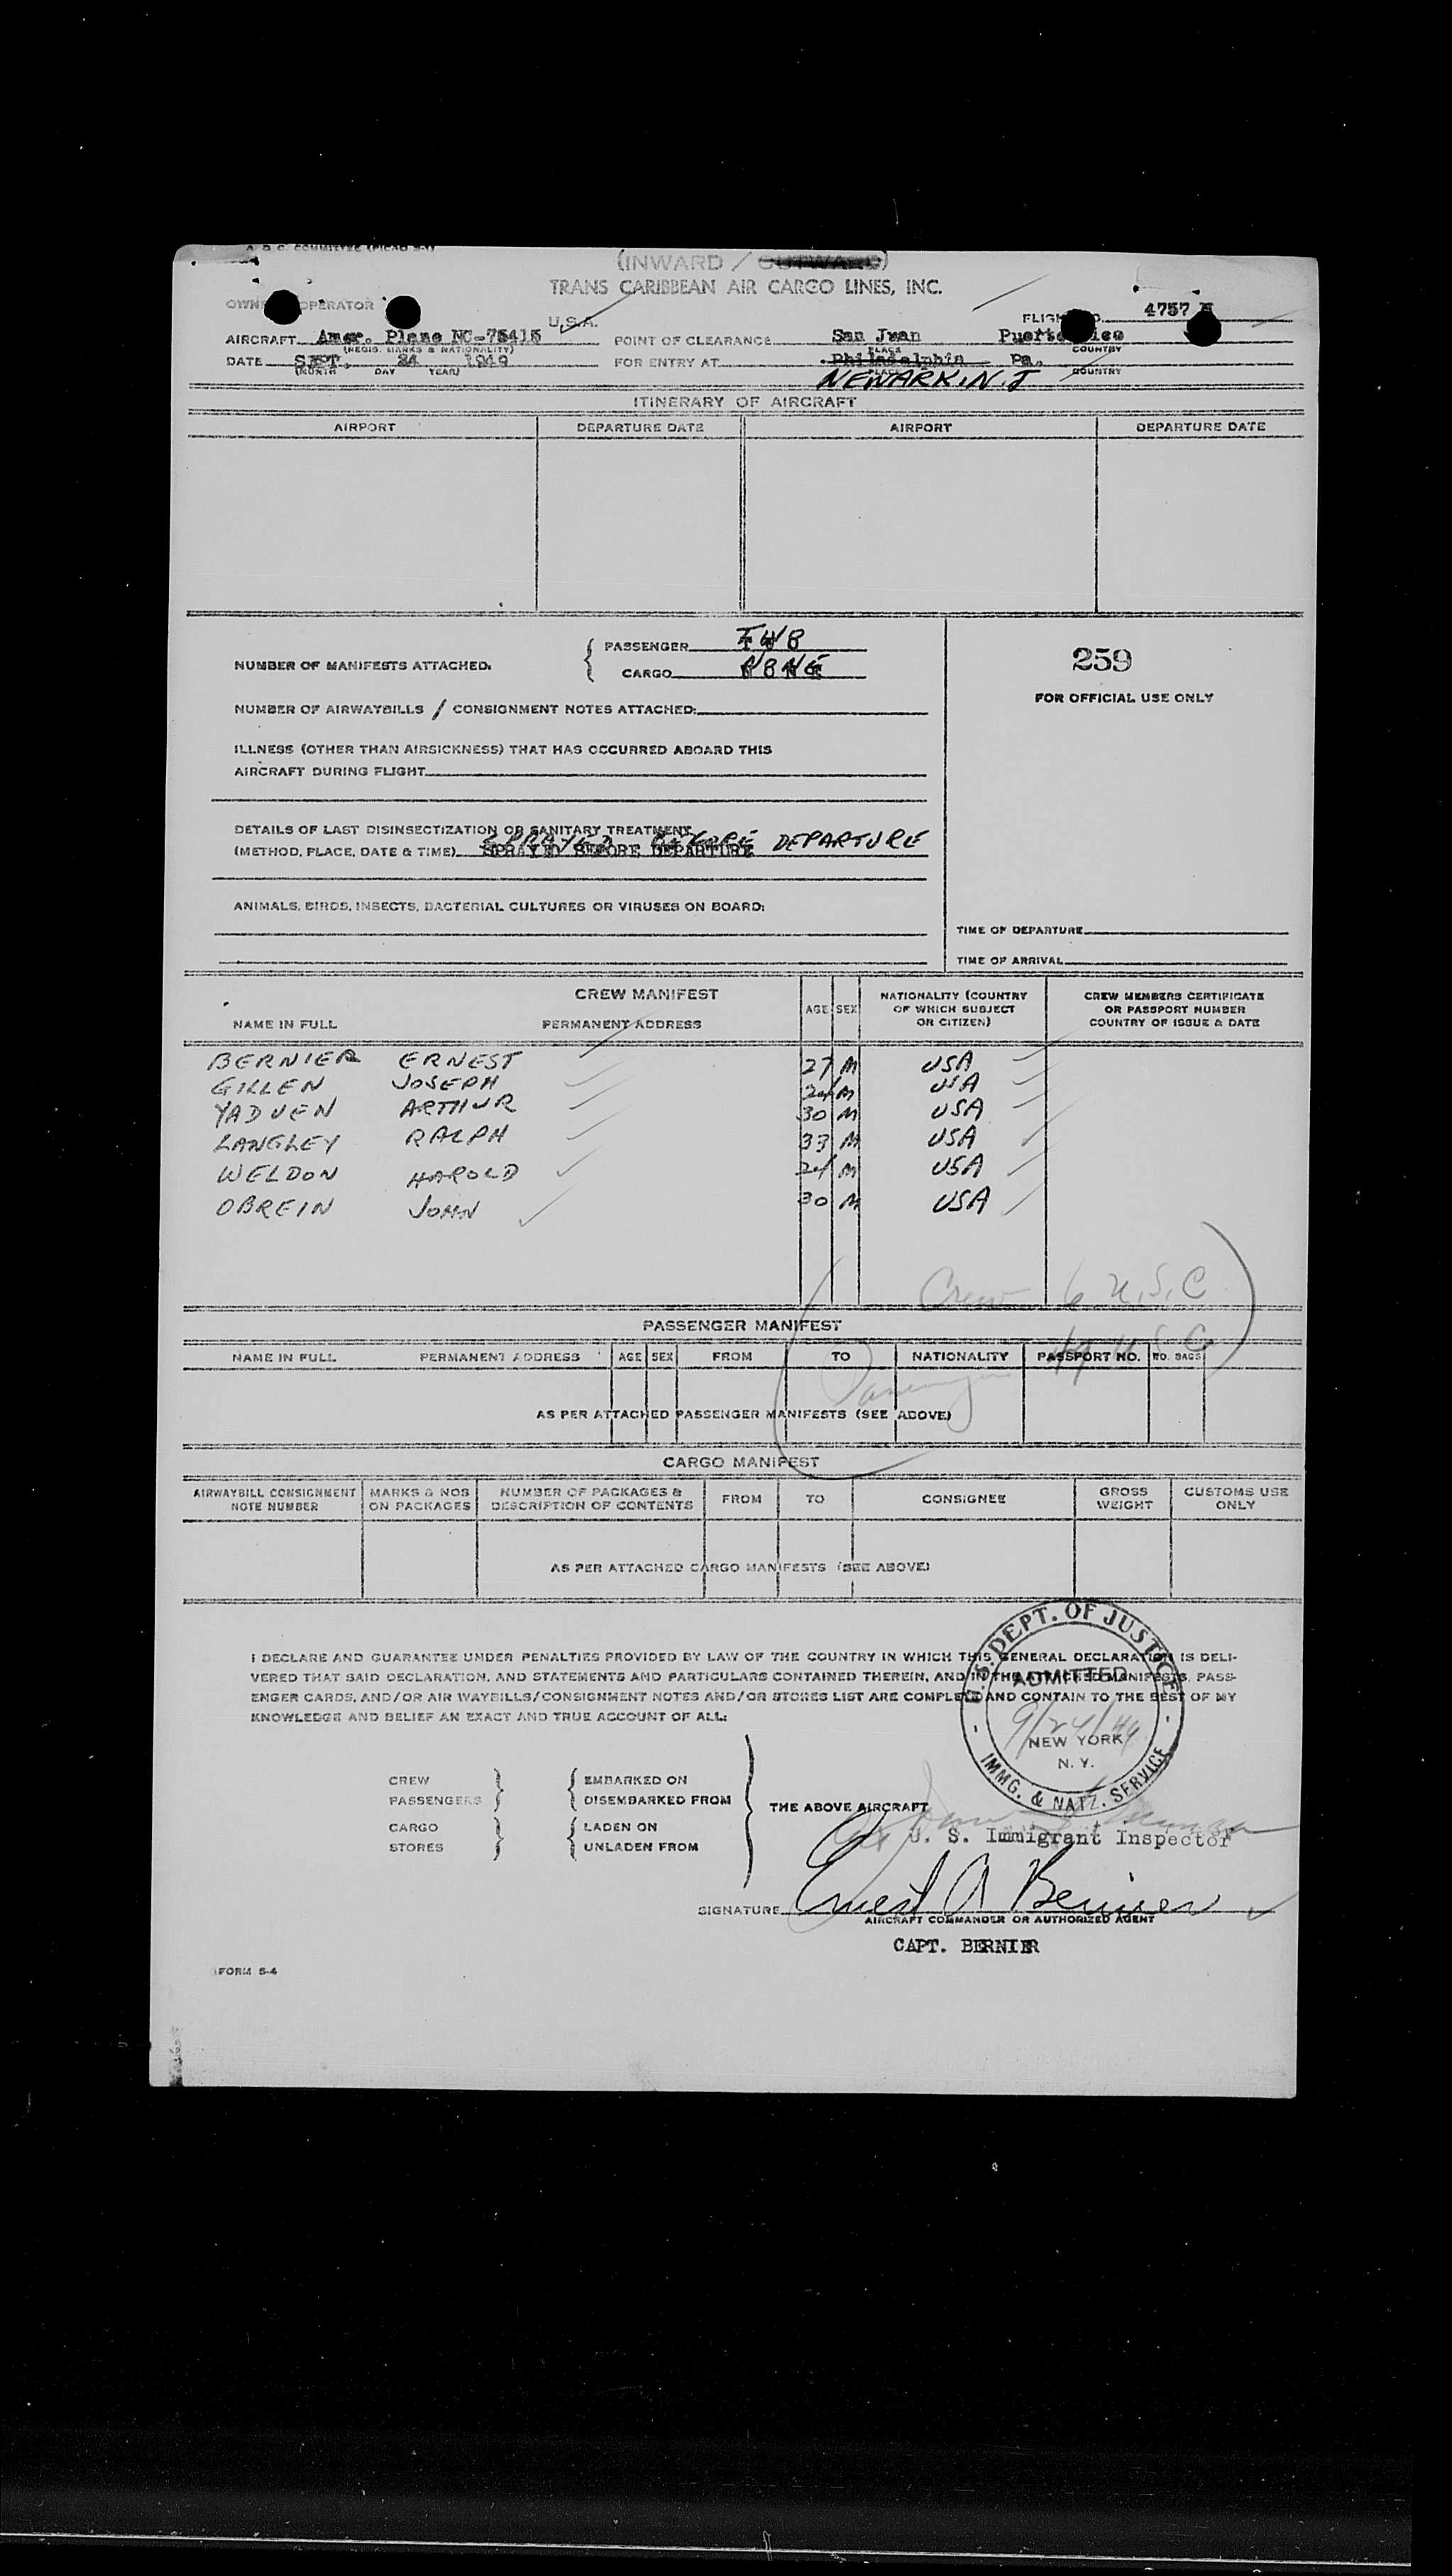 A. D. C. COMMITTEE (PICAO
(INWARD / OUTWARD)
TRANS CARIBBEAN AIR CARGO LINES, INC.
OWNER OPERATOR
U.S.A.
FLIGHT NO. 4757
AIRCRAFT Amer. Plane NC-75415 POINT OF CLEARANCE San Jwan Puerto Rico
(REGIS. MARKS & NATIONALITY) PLACE COUNTRY
DATE SEPT. 24 1949 FOR ENTRY AT Philadelphia Pa.
(MONTH DAY YEAR) PLACE COUNTRY
NEWARK, N. J
ITINERARY OF AIRCRAFT
AIRPORT DEPARTURE DATE AIRPORT DEPARTURE DATE
NUMBER OF MANIFESTS ATTACHED: { PASSENGER
CARGO
259
FOR OFFICIAL USE ONLY
NUMBER OF AIRWAYBILLS / CONSIGNMENT NOTES ATTACHED:
ILLNESS (OTHER THAN AIRSICKNESS) THAT HAS OCCURRED ABOARD THIS
AIRCRAFT DURING FLIGHT
DETAILS OF LAST DISINSECTIZATION OR SANITARY TREATMENT
SPRAYED BEFORE DEPARTURE
(METHOD, PLACE, DATE & TIME) SPRAYED BEFORE DEPARTURE
ANIMALS, BIRDS, INSECTS, BACTERIAL CULTURES OR VIRUSES ON BOARD:
TIME OF DEPARTURE
TIME OF ARRIVAL
CREW MANIFEST
NAME IN FULL PERMANENT ADDRESS AGE SEX NATIONALITY (COUNTRY OF WHICH SUBJECT OR CITIZEN) CREW MEMBERS CERTIFICATE OR PASSPORT NUMBER COUNTRY OF ISSUE & DATE
BERNIER ERNEST 27 M USA
GILLEN JOSEPH 24 M USA
YADUEN ARTHUR 30 M USA
LANGLEY RALPH 33 M USA
WELDON HAROLD 24 M USA
OBREIN JOHN 30 M USA
Crew 6 U.S.C
PASSENGER MANIFEST
Passengers 49 U S C
NAME IN FULL PERMANENT ADDRESS AGE SEX FROM TO NATIONALITY PASSPORT NO. NO. BAGS
AS PER ATTACHED PASSENGER MANIFESTS (SEE ABOVE)
CARGO MANIFEST
AIRWAYBILL CONSIGNMENT NOTE NUMBER MARKS & NOS ON PACKAGES NUMBER OF PACKAGES & DESCRIPTION OF CONTENTS FROM TO CONSIGNEE GROSS WEIGHT CUSTOMS USE ONLY
AS PER ATTACHED CARGO MANIFESTS (SEE ABOVE)
I DECLARE AND GUARANTEE UNDER PENALTIES PROVIDED BY LAW OF THE COUNTRY IN WHICH THIS GENERAL DECLARATION IS DELI-
VERED THAT SAID DECLARATION, AND STATEMENTS AND PARTICULARS CONTAINED THEREIN, AND IN THE ATTACHED MANIFESTS, PASS-
ENGER CARDS, AND/OR AIR WAYBILLS/CONSIGNMENT NOTES AND/OR STORES LIST ARE COMPLETE AND CONTAIN TO THE BEST OF MY
KNOWLEDGE AND BELIEF AN EXACT AND TRUE ACCOUNT OF ALL:
U. S. DEPT. OF JUSTICE
ADMITTED
9/24/49
NEW YORK
N. Y.
IMMG. & NATZ. SERVICE
CREW
PASSENGERS
CARGO
STORES
EMBARKED ON
DISEMBARKED FROM
LADEN ON
UNLADEN FROM
THE ABOVE AIRCRAFT
U. S. Immigrant Inspector
SIGNATURE Ernest A Bernier
AIRCRAFT COMMANDER OR AUTHORIZED AGENT
CAPT. BERNIER
FORM S-4